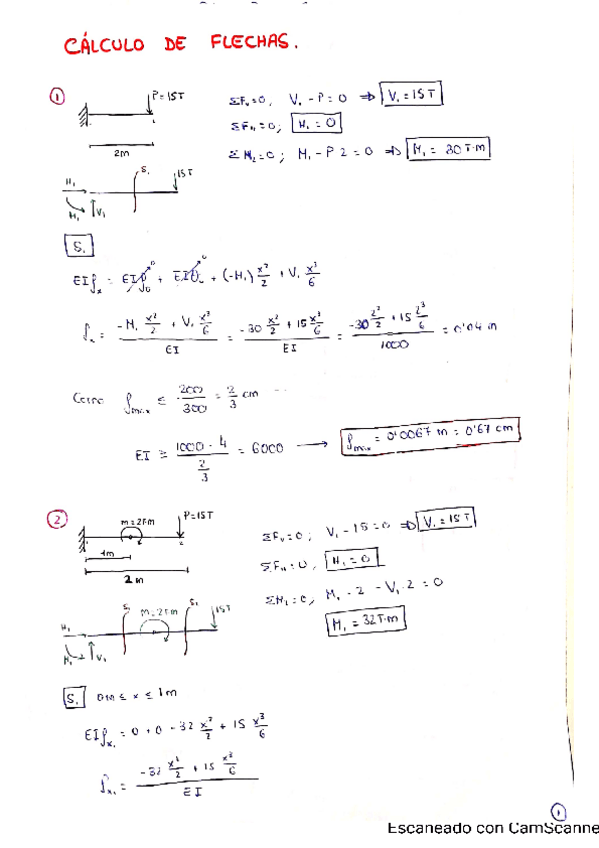 CÁLCULO DE FLECHAS.
① P=15T
ΣFv=0, V₁-P=0 ⇒ V₁=15T
ΣFH=0; H₁=0
2m
ΣM₂=0; M₁-P·2=0 ⇒ M₁=30T·m
H₁ M₁ V₁ S₁ 15T
S₁
EIfₓ = EIf₀ + EIθ₀ + (-M₁) x²/2 + V₁ x³/6
fₓ = (-M₁ x²/2 + V₁ x³/6)/EI = (-30 x²/2 + 15 x³/6)/EI = (-30 2²/2 + 15 2³/6)/1000 = 0'04 m
Como fmax ≤ 200/300 = 2/3 cm
EI ≥ (1000·4)/(2/3) = 6000 → fmax = 0'0067 m = 0'67 cm
② m=2Tm P=15T
ΣFv=0; V₁-15=0 ⇒ V₁=15T
1m
ΣFH=0, H₁=0
2m
ΣM₂=0, M₁-2-V₁·2=0
M₁=32T·m
H₁ M₁ V₁ S₁ m=2Tm S₂ 15T
S₁ 0m ≤ x ≤ 1m
EIfx₁ = 0+0-32 x²/2 + 15 x³/6
fx₁ = (-32 x²/2 + 15 x³/6)/EI
①
Escaneado con CamScanne